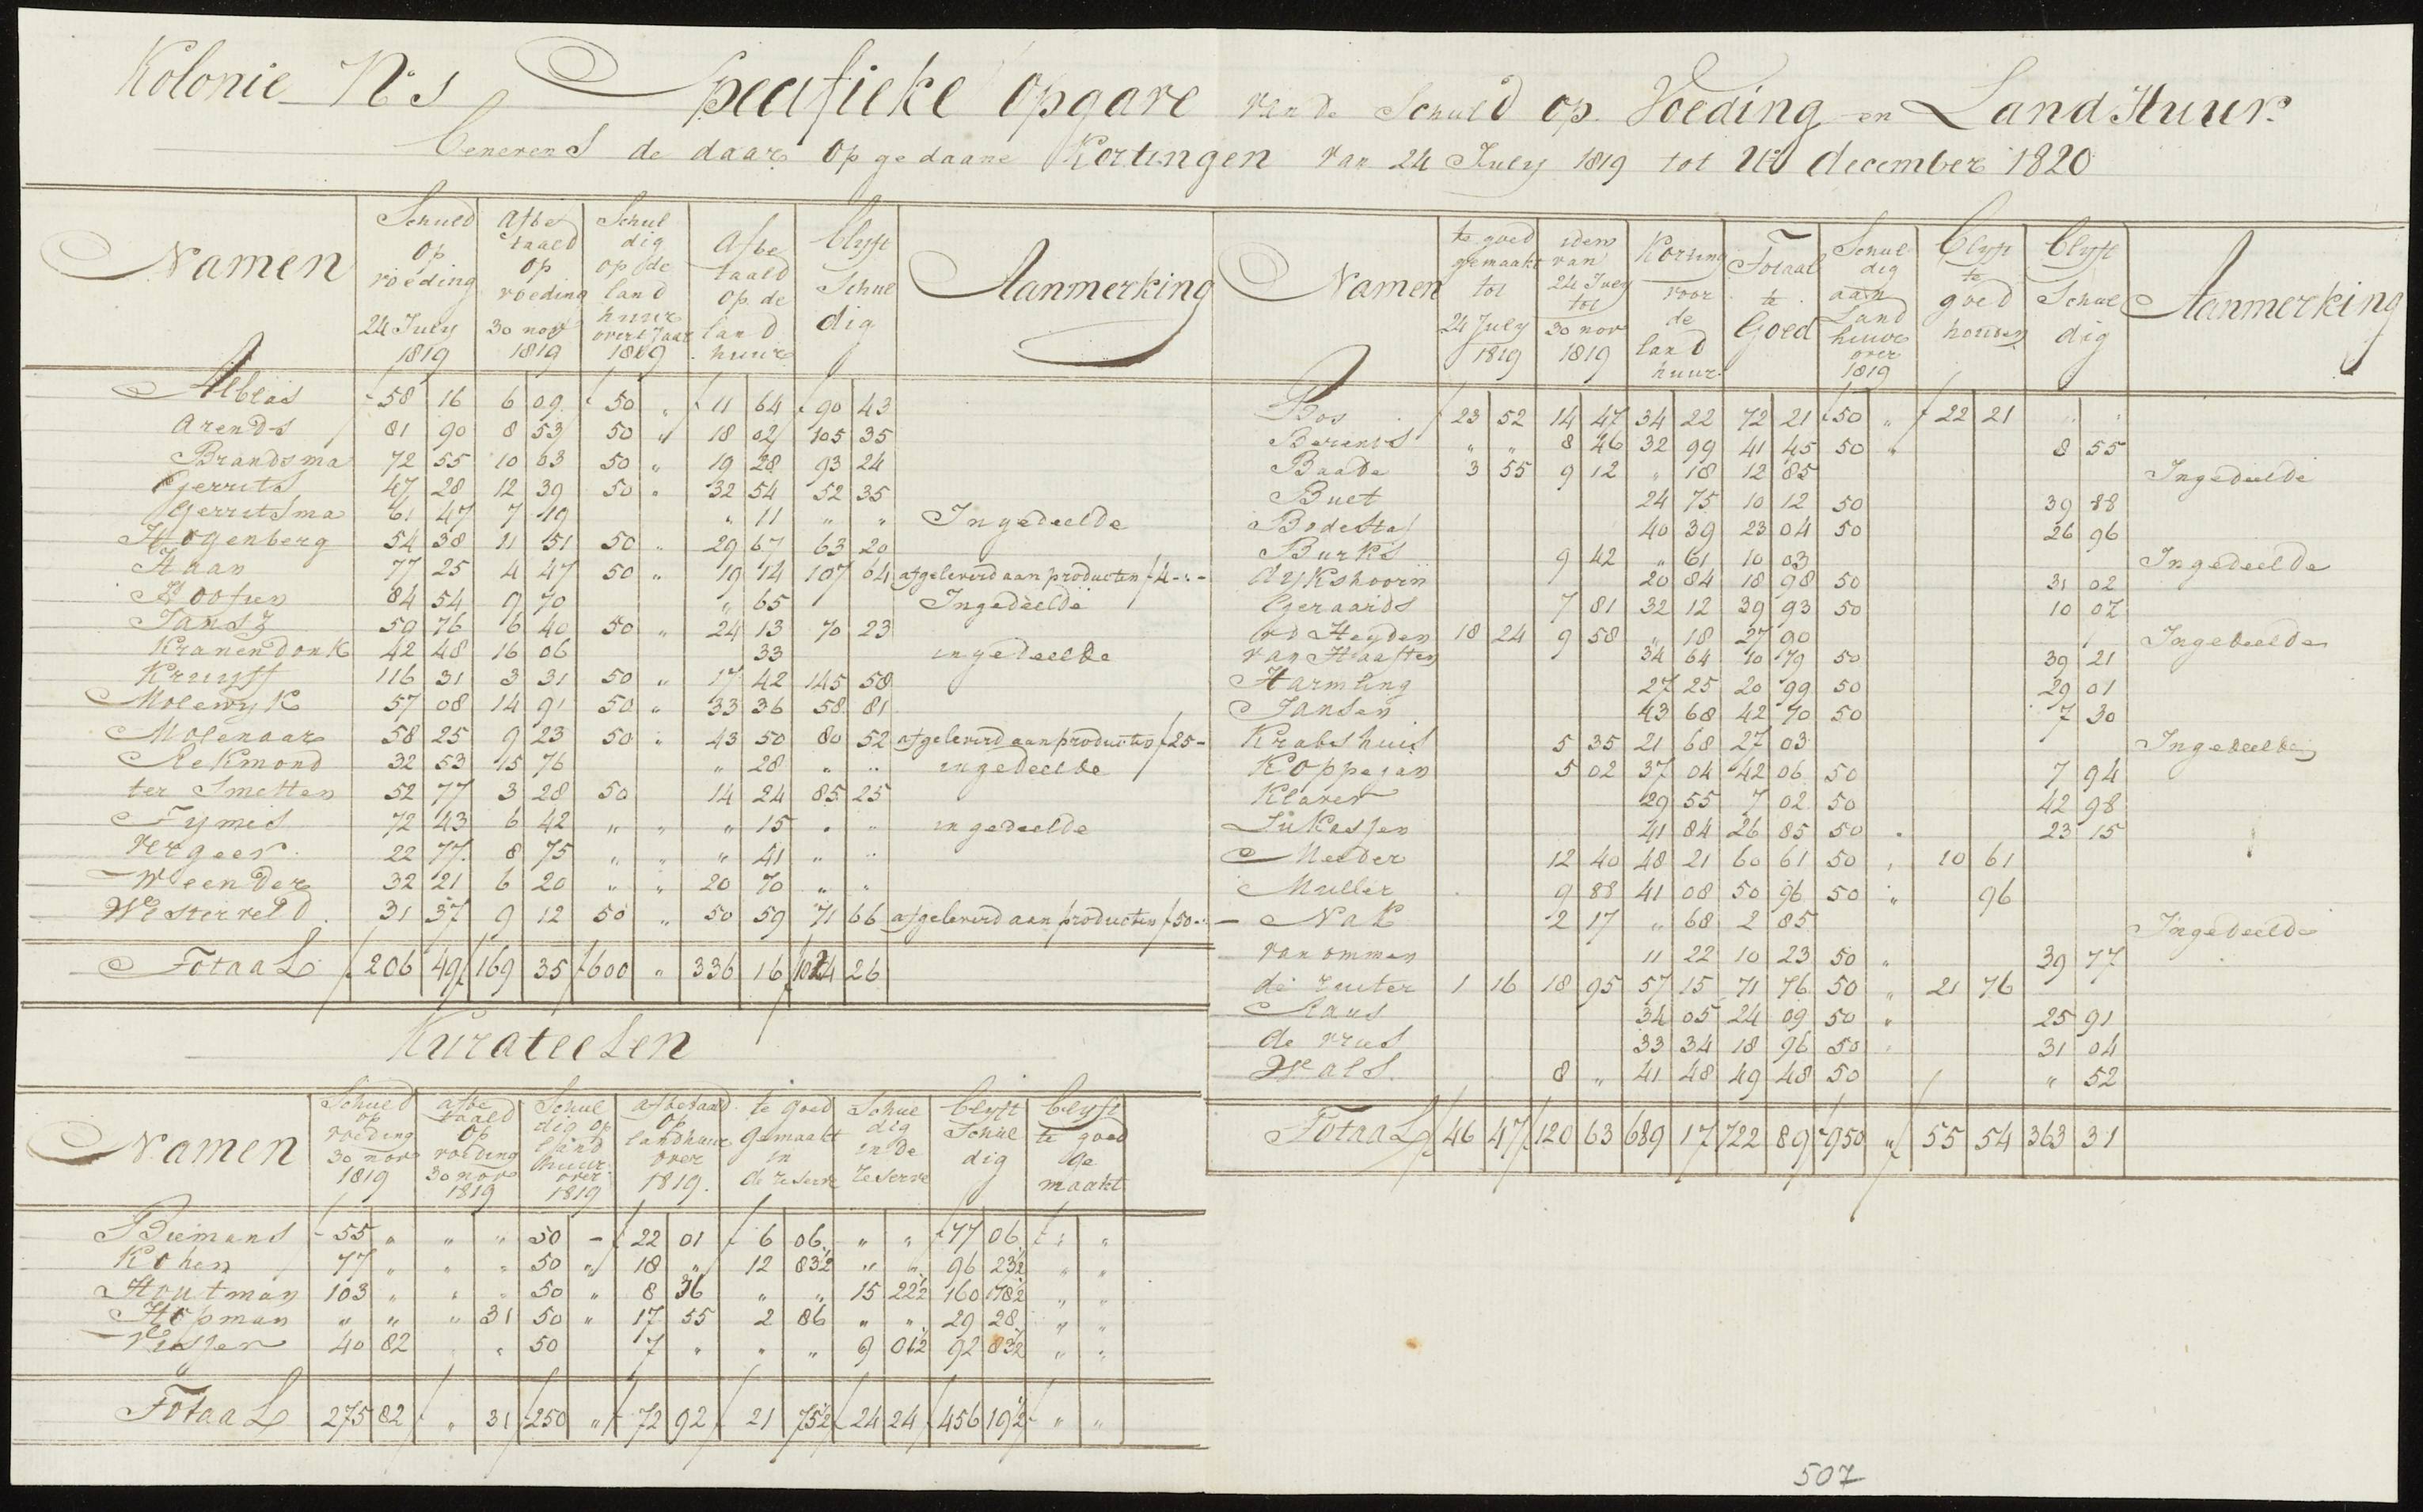 Kolonie N:1 Specifieke Opgave van de Schuld op Voeding en Land Huur.
benevens de daar op gedaane Kortingen van 24 July 1819 tot december 1820
Namen | Schuld op voeding 24 July 1819 | Afbetaald op voeding 30 nov 1819 | Schuldig op de land huur over 't Jaar 1819 | Afbetaald op de land huur | blyft Schuldig | Aanmerking
Alblas f 58 16 6 09 f 50 " f 11 64 f 90 43
Arends 81 90 8 53 50 " 18 02 105 35
Brandsma 72 55 10 03 50 " 19 28 93 24
Gerrits 47 28 12 39 50 " 32 54 52 35
Gerritsma 61 47 7 19 " 11 " " Ingedeelde
Hogenberg 54 38 11 51 50 " 29 67 63 20
Haan 77 25 4 47 50 " 19 14 107 64 afgeleverd aan producten f 4-:-
84 54 9 70 " 65 Ingedeelde
Jansz 59 76 6 40 50 " 24 13 70 23
Kranendonk 42 48 16 06 33 ingedeelde
Kruyff 116 31 3 31 50 " 17 42 145 58
Molewyk 57 08 14 91 50 " 33 36 58 81
Molenaar 58 25 9 23 50 " 43 50 80 52 afgeleverd aan producten f 25-
Rekmond 32 53 15 76 " 28 " " ingedeelde
ter Smetten 52 77 3 28 50 14 24 85 25
Tymes 72 43 6 42 " " " 15 " " ingedeelde
Vergeer 22 77 8 75 " " " 41 " "
Weender 32 21 6 20 " " 20 70 " "
Westerveld 31 37 9 12 50 " 50 59 71 66 afgeleverd aan producten f 50-
Totaal f 206 49 f 169 35 f 600 " 336 16 26
Kurateelen
Namen | Schuld op voeding 30 nov 1819 | afbetaald op voeding 30 nov 1819 | Schuldig op land huur over 1819 | afbetaald op landhuur over 1819. | te goed gemaakt in de reserve | Schuldig in de reserve | blyft Schuldig | blyft te goed gemaakt
Biemans f 55 " " " 50 - f 22 01 f 6 06 " " f 77 06 f " "
Kohen 77 " " " 50 " 18 " 12 83½ " " 96 23½ " "
Houtman 103 " " " 50 " 8 36 " " 15 22½ 160 78½ " "
Hopman " " " 31 50 " 17 55 2 86 " " 29 28 " "
Visser 40 82 " 50 7 " " " 9 01½ 92 83½ " "
Totaal 275 82 f " 31 f 250 " f 72 92 f 21 75½ f 24 24 f 456 19½ f " "
Namen | te goed gemaakt tot 24 July 1819 | idem van 24 July tot 30 nov 1819 | Korting voor de land huur | Totaal te Goed | Schuldig aan Land huur over 1819 | blyft te goed houden | blyft Schuldig | Aanmerking
Bos f 23 52 14 47 34 22 72 21 f 50 " f 22 21 " "
Berends " " 8 46 32 99 41 45 50 " 8 55
Baade 3 55 9 12 " 18 12 85 Ingedeelde
Buet 24 75 10 12 50 39 88
Bodestaf 40 39 23 04 50 26 96
Burks 9 42 " 61 10 03 Ingedeelde
dykshoorn 20 84 18 98 50 31 02
Geraards 7 81 32 12 39 93 50 10 07
vd Heyden 18 24 9 58 " 18 27 90 Ingedeelde
van Haaften 34 64 10 79 50 39 21
Harmling 27 25 20 99 50 29 01
Jansen 43 68 42 70 50 7 30
Krabshuis 5 35 21 68 27 03 Ingedeelde
Koppejan 5 02 37 04 42 06 50 7 94
Klaver 29 55 7 02 50 42 98
Lukassen 41 84 26 85 50 " 23 15
Meeder 12 40 48 21 60 61 50 " 10 61
Muller 9 88 41 08 50 96 50 " 96
Nak 2 17 " 68 2 85 Ingedeelde
van ommen 11 22 10 23 50 " 39 77
de ruiter 1 16 18 95 57 15 71 76 50 " 21 76
Raus 34 05 24 09 50 " 25 91
de vries 33 34 18 96 50 " 31 04
Wals 8 " 41 48 49 48 50 " 52
Totaal f 46 47 f 120 63 689 17 722 89 f 950 " f 55 54 363 31
507